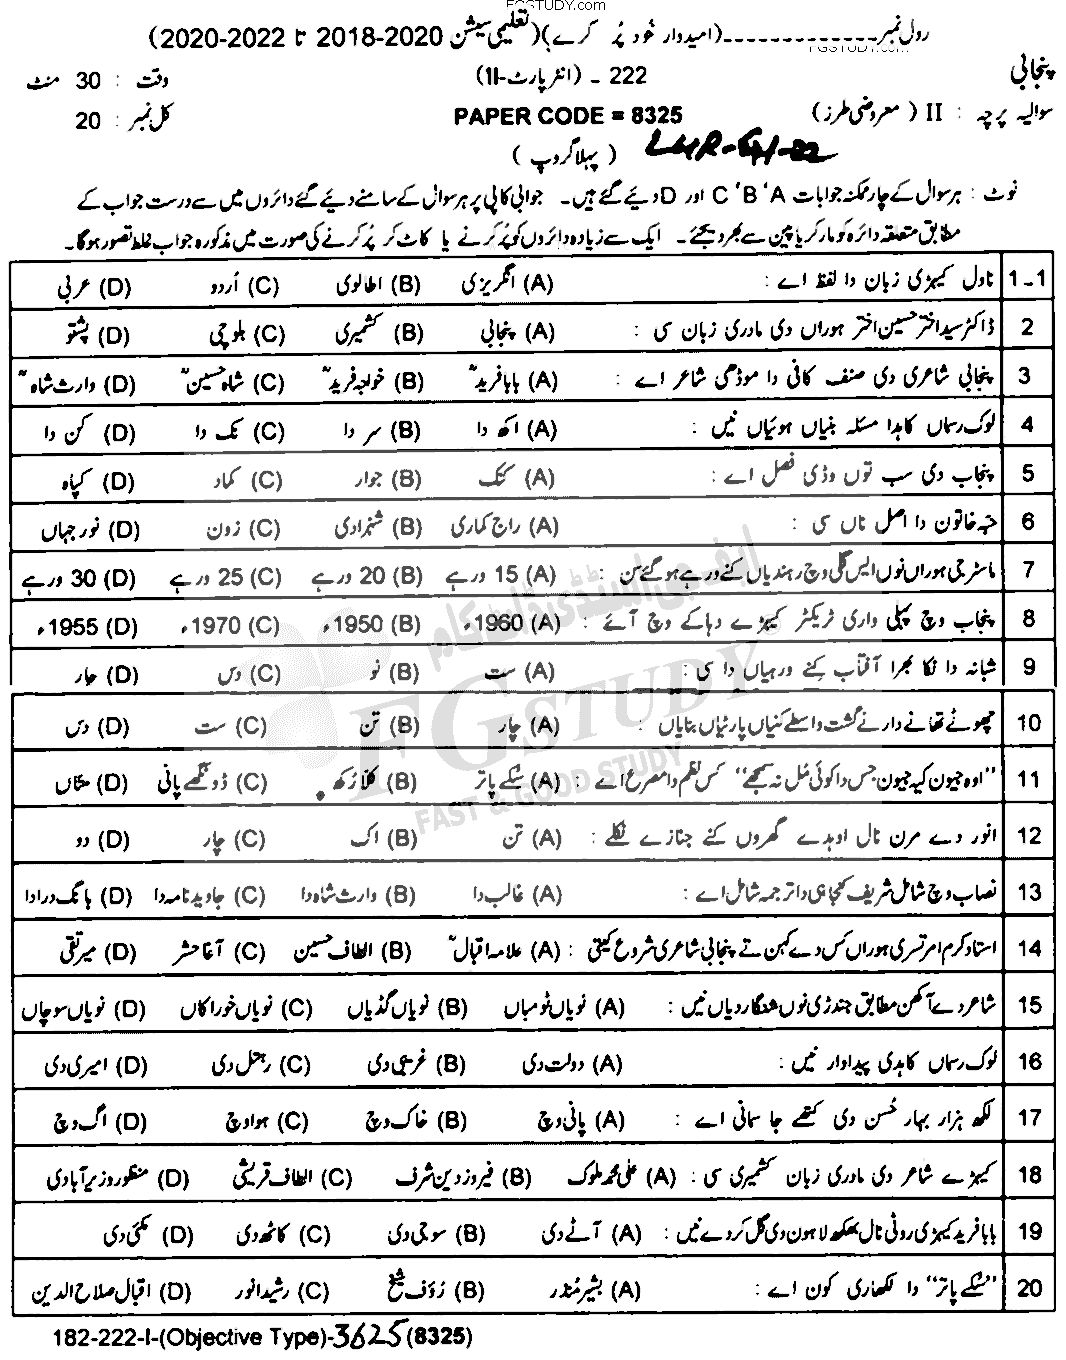 FGSTUDY.com
رول نمبر-------------(امیدوار خُود پُر کرے)(تعلیمی سیشن 2020-2018 تا 2022-2020)
FGSTUDY.com
پنجابی 222 - (انٹر پارٹ-II) وقت : 30 منٹ
سوالیہ پرچہ : II (معروضی طرز) PAPER CODE = 8325 کل نمبر : 20
(پہلا گروپ) LHR-G1-22
نوٹ : ہر سوال کے چار ممکنہ جوابات A'B'C اور D دیئے گئے ہیں۔ جوابی کاپی پر ہر سوال کے سامنے دیئے گئے دائروں میں سے درست جواب کے
مطابق متعلقہ دائرہ کو مارکر یا پین سے بھر دیجئے۔ ایک سے زیادہ دائروں کو پُر کرنے یا کاٹ کر پُر کرنے کی صورت میں مذکورہ جواب غلط تصور ہوگا۔
1-1 ناول کیہڑی زبان دا لفظ اے : (A) انگریزی (B) اطالوی (C) اُردو (D) عربی
2 ڈاکٹر سید اختر حسین اختر ہوراں دی مادری زبان سی : (A) پنجابی (B) کشمیری (C) بلوچی (D) پشتو
3 پنجابی شاعری دی صنف کافی دا موڈھی شاعر اے : (A) بابا فریدؒ (B) خواجہ فریدؒ (C) شاہ حسینؒ (D) وارث شاہؒ
4 لوک رسماں کاہدا مسئلہ بنیاں ہوئیاں نیں : (A) اکھ دا (B) سر دا (C) نک دا (D) کن دا
5 پنجاب دی سب توں وڈی فصل اے : (A) کنک (B) جوار (C) کماد (D) کپاہ
6 حبہ خاتون دا اصل ناں سی : (A) راج کماری (B) شہزادی (C) زون (D) نور جہاں
7 ماسٹر جی ہوراں نوں ایس گلی وچ رہندیاں کنے ورہے ہو گئے سن : (A) 15 ورہے (B) 20 ورہے (C) 25 ورہے (D) 30 ورہے
8 پنجاب وچ پہلی واری ٹریکٹر کیہڑے دہاکے وچ آئے : (A) 1960ء (B) 1950ء (C) 1970ء (D) 1955ء
9 شبانہ دا نکا بھرا آفتاب کنے ورہیاں دا سی : (A) ست (B) نو (C) دس (D) چار
10 چھوٹے تھانے دار نے گشت واسطے کنیاں پارٹیاں بنایاں : (A) چار (B) تن (C) ست (D) دس
11 "اوہ جیون کیہ جیون جس دا کوئی مُل نہ سمجھے" کس نظم دا مصرع اے : (A) سُکے پتر (B) کلا رُکھ (C) ڈونگھے پانی (D) مٹاں
12 انور دے مرن نال اوہدے گھروں کنے جنازے نکلے : (A) تن (B) اک (C) چار (D) دو
13 نصاب وچ شامل شریف کنجاہی دا ترجمہ شامل اے : (A) غالب دا (B) وارث شاہ دا (C) جاوید نامہ دا (D) بانگ درا دا
14 استاد کرم امرتسری ہوراں کس دے کہن تے پنجابی شاعری شروع کیتی : (A) علامہ اقبالؒ (B) الطاف حسین (C) آغا حشر (D) میر تقی
15 شاعر دے آکھن مطابق جندڑی نوں شنگاردیاں نیں : (A) نویاں ٹومباں (B) نویاں گڈیاں (C) نویاں خوراکاں (D) نویاں سوچاں
16 لوک رسماں کاہدی پیداوار نیں : (A) دولت دی (B) غریبی دی (C) رہتل دی (D) امیری دی
17 لکھ ہزار بہار حُسن دی کتھے جا سمانی اے : (A) پانی وچ (B) خاک وچ (C) ہوا وچ (D) اگ وچ
18 کیہڑے شاعر دی مادری زبان کشمیری سی : (A) علی محمد ملوک (B) فیروز دین شرف (C) الطاف قریشی (D) منظور وزیر آبادی
19 بابا فرید کیہڑی روٹی نال بھکھ لاہون دی گل کردے نیں : (A) آٹے دی (B) سوجی دی (C) کاٹھ دی (D) مکئی دی
20 "سُکے پتر" دا لکھاری کون اے : (A) بشیر منذر (B) رؤف شیخ (C) رشید انور (D) اقبال صلاح الدین
ایف جی اسٹڈی ڈاٹ کام
FGSTUDY
FAST & GOOD STUDY
182-222-I-(Objective Type)-3625 (8325)